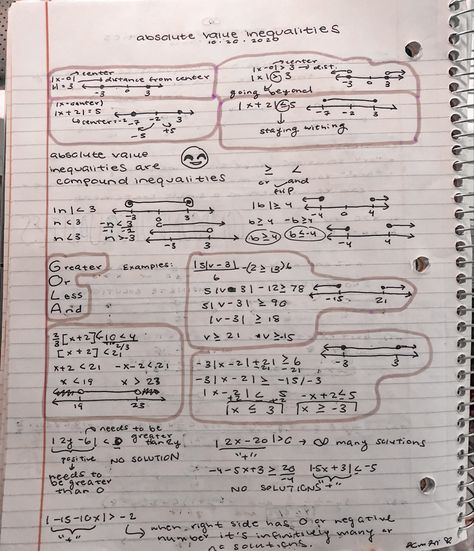 absolute value inequalities
10.20.2020
center
|x-0| → distance from center
|x| = 3
-3 0 3
|x-center|
|x+2| = 5
↳ center = -2
-7 -2 3
-5 +5
center
|x-0| > 3 → dist.
|x| > 3
-3 0 3
going beyond
|x+2| ≤ 5
-7 -2 3
staying withing
absolute value
inequalities are
compound inequalities
≥ <
or and
flip
|n| < 3
-3 3
n < 3 -n < 3
n < 3 n > -3
-3 3
|b| ≥ 4
-4 4
b ≥ 4 -b ≥ 4
b ≥ 4 b ≤ -4
-4 4
Greater
Or
Less
And
Examples:
5|v-3| ≥ 90
|v-3| ≥ 18
v ≥ 21 v ≥ -15
-15 21
[x+2] < 21
x+2 < 21 -x-2 < 21
x < 19 x > 23
19 23
-3|x-2| + 21 ≥ 6
-3|x-2| ≥ -15/-3
|x-2| ≤ 5 -x+2 ≤ 5
|x ≤ 3| |x ≥ -3|
-3 3
needs to be
greater
than
|2y-6| < 0
positive NO SOLUTION
needs to
be greater
than 0
|2x-20| > 0 → ∞ many solutions
"+"
-4-5x+3 ≥ 20
-4
|-5x+3| < -5
"+"
NO SOLUTIONS
|-15-10x| > -2
"+"
when right side has 0 or negative
number it's infinitely many or
no solutions.